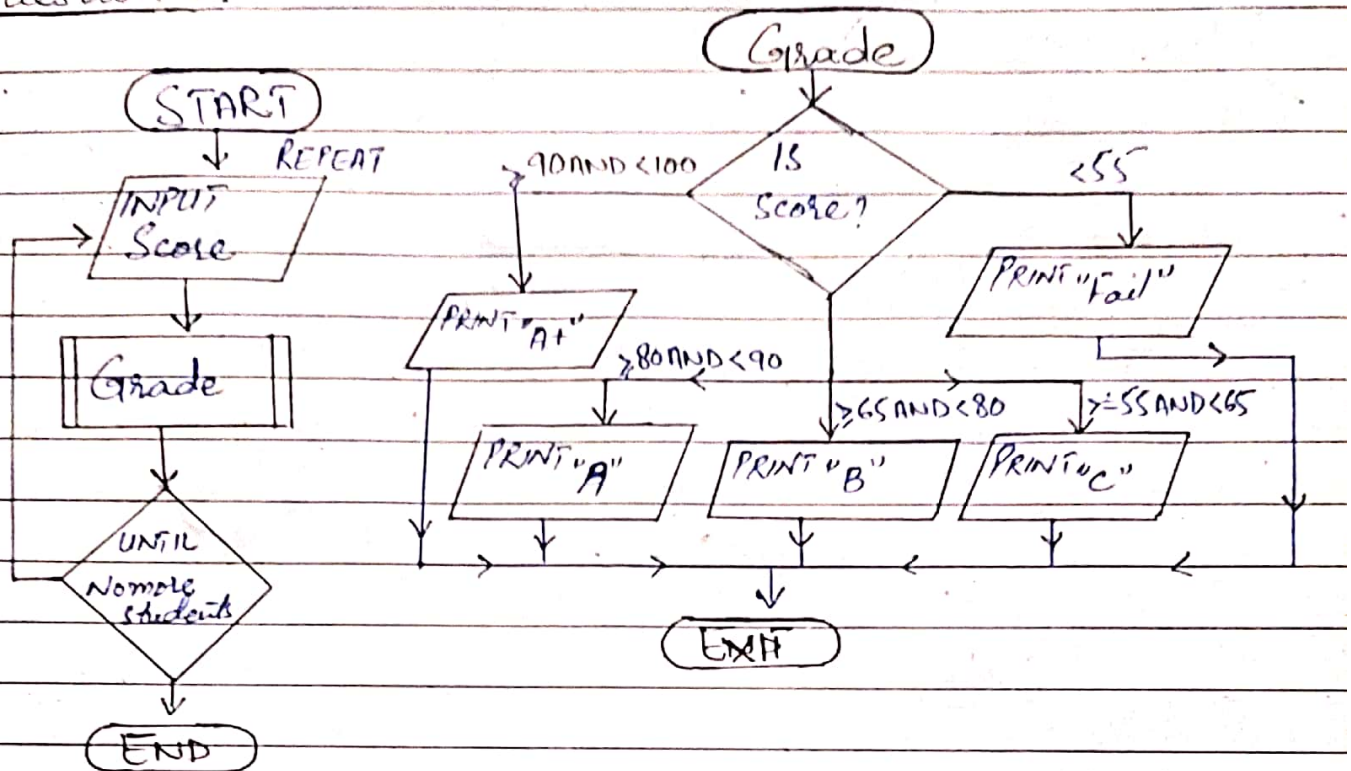 START
REPEAT
INPUT
Score
Grade
UNTIL
No more
students
END
Grade
IS
Score?
≥90AND<100
<55
PRINT "A+"
PRINT "Fail"
≥80AND<90
≥65AND<80
>=55AND<65
PRINT "A"
PRINT "B"
PRINT "C"
EXIT